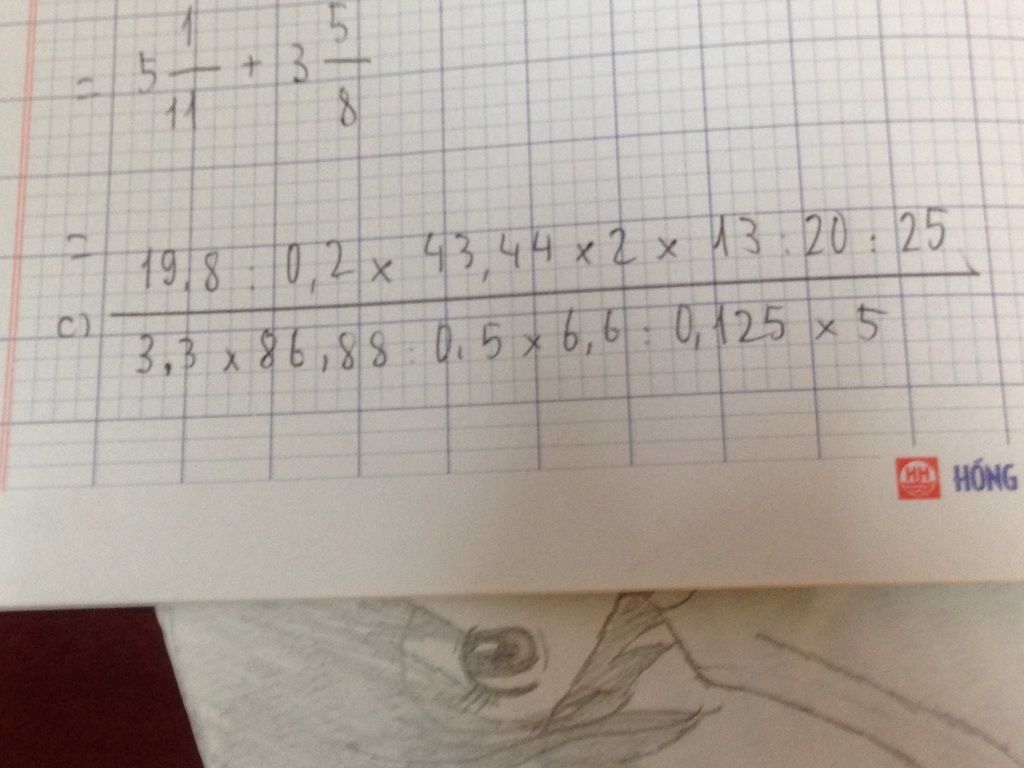 = 5 1/11 + 3 5/8
=
19,8 : 0,2 x 43,44 x 2 x 13 : 20 : 25
c)
3,3 x 86,88 : 0,5 x 6,6 : 0,125 x 5
HH HỒNG